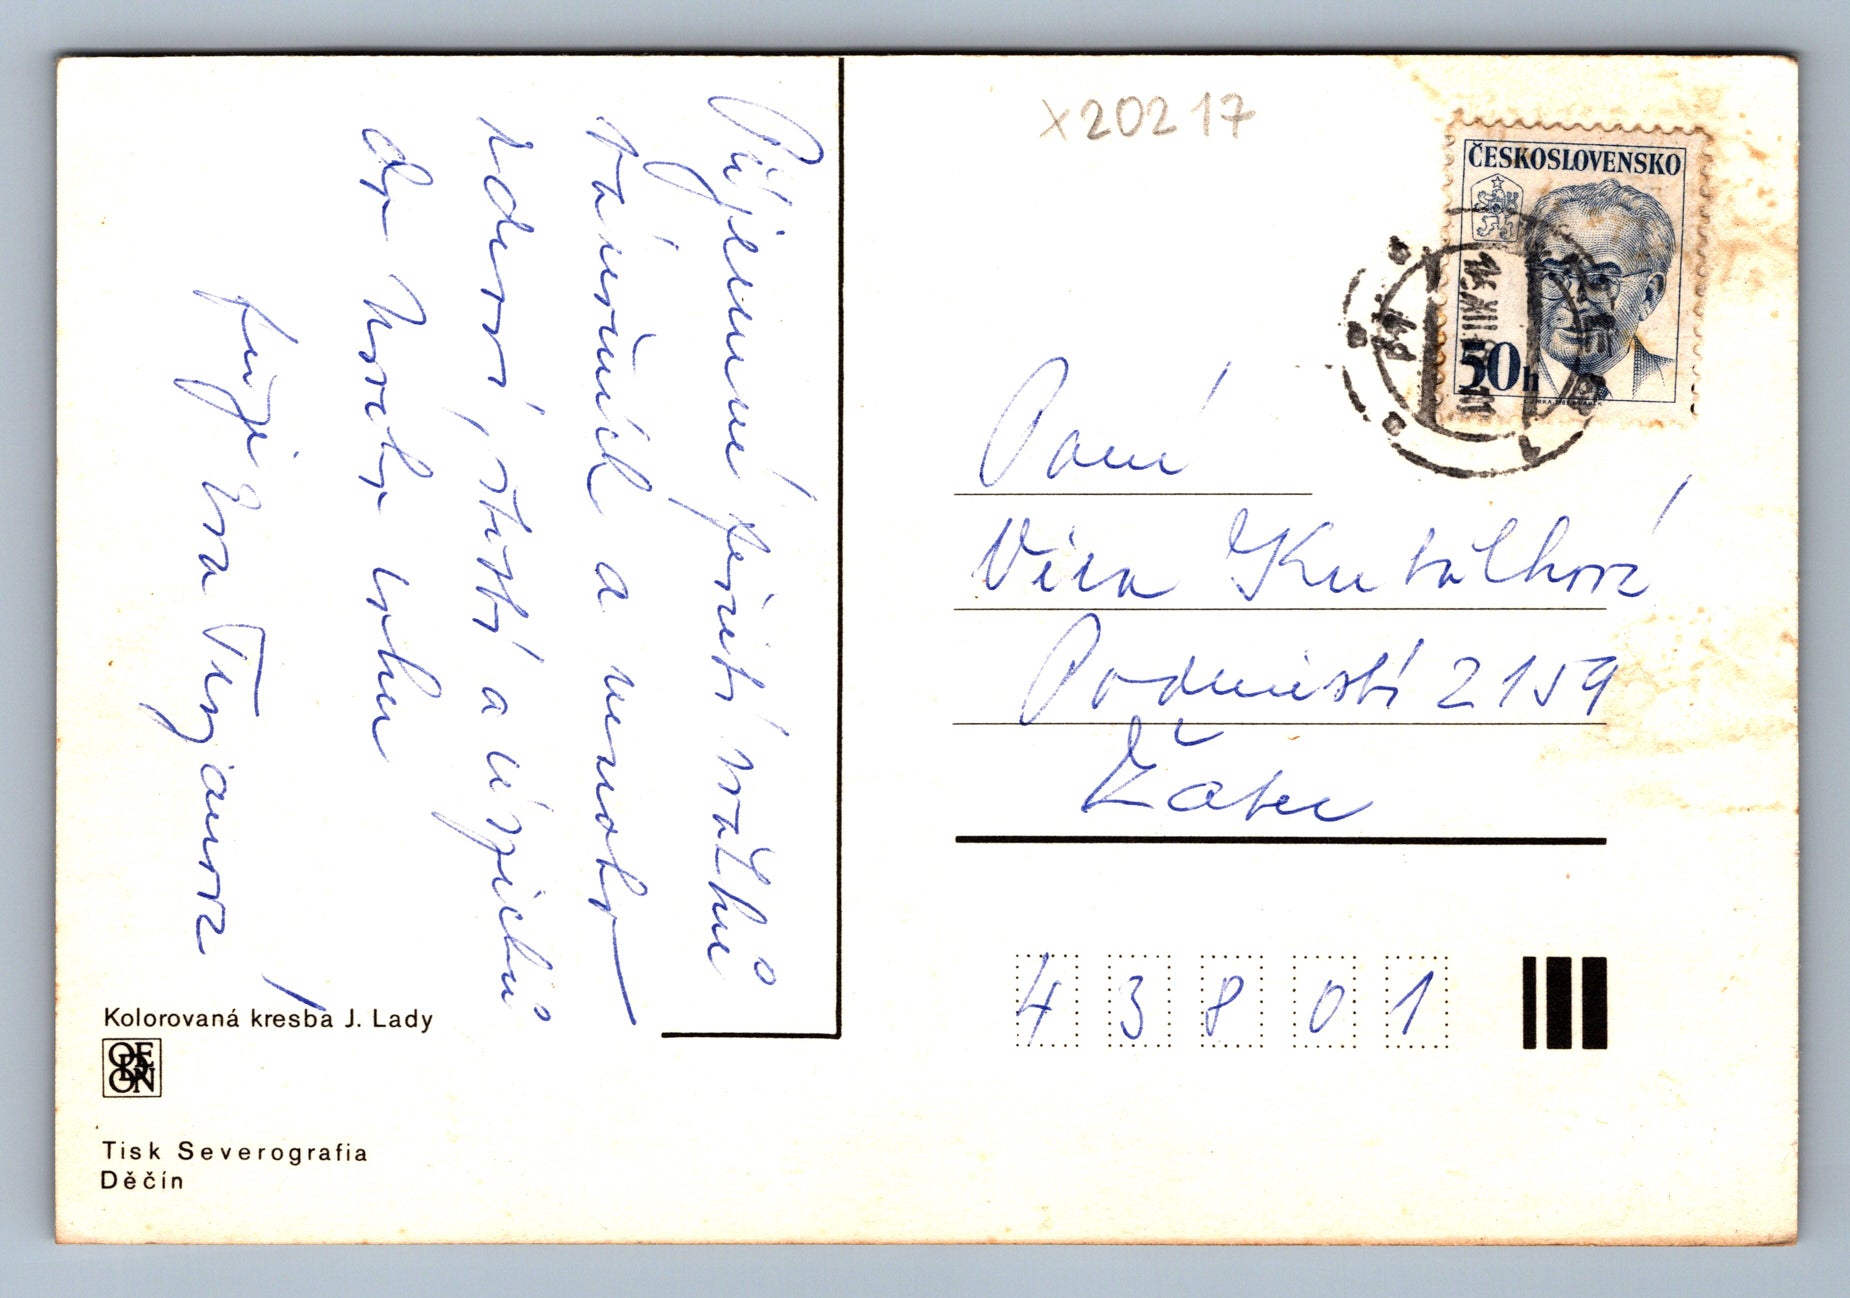 Příjemné prožití svátků
vánočních a mnoho
zdraví, štěstí a úspěchů
do Nového roku
přeje Eva
Kolorovaná kresba J. Lady
ODEON
Tisk Severografia
Děčín
x20217
ČESKOSLOVENSKO
50h
Paní
Věra Kutálková
Podměstí 2159
Žatec
43801